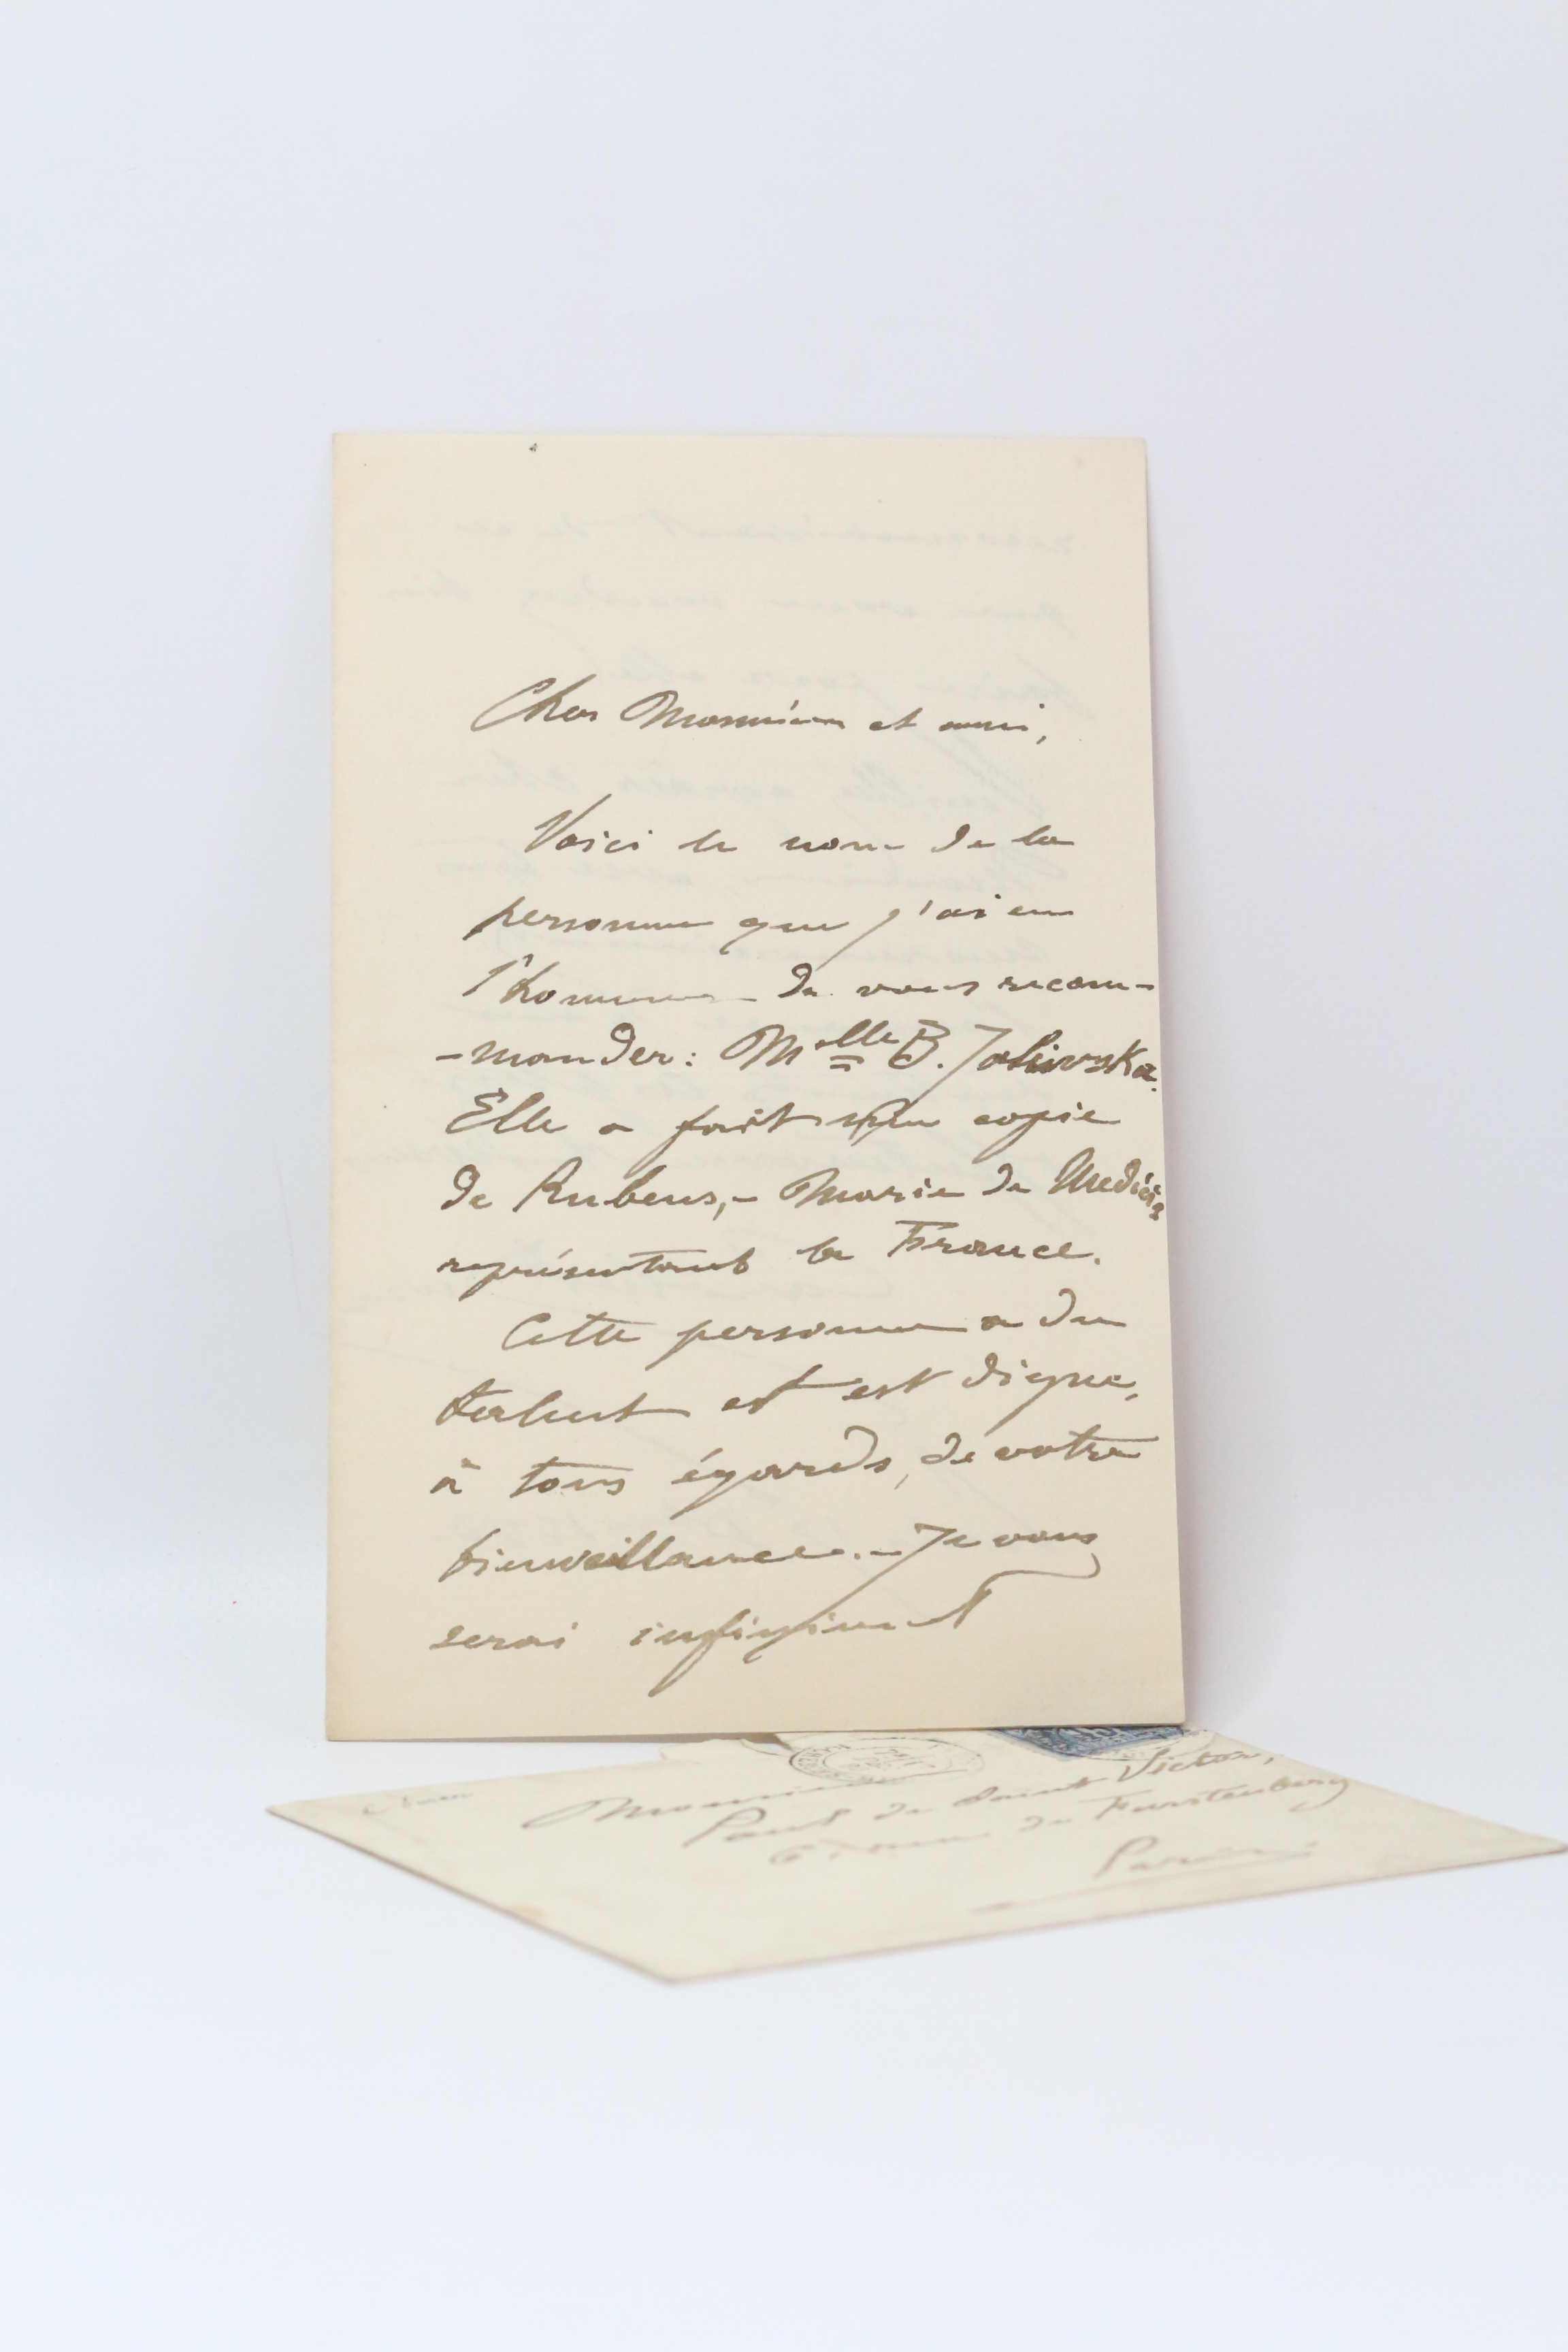 Cher Monsieur et ami,
Voici le nom de la
personne que j'ai eu
l'honneur de vous recom-
-mander: Melle B. Jaliwska.
Elle a fait une copie
de Rubens,- Marie de Medicis
représentant la France.
Cette personne a du
talent et est digne,
à tous égards, de votre
bienveillance. - Je vous
serai infiniment
Monsieur
Paul de Saint Victor,
rue de Furstenberg
Paris